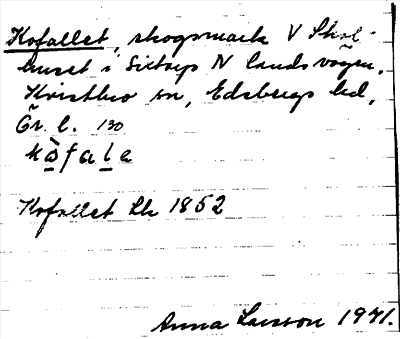 Kofallet, skogsmark V Skol-
huset i Sixtorp N landsvägen.
Kvistbro sn, Edsbergs hd,
Ör. l. 130
kòfalə
Kofallet Lk 1852
Anna Larsson 1941.